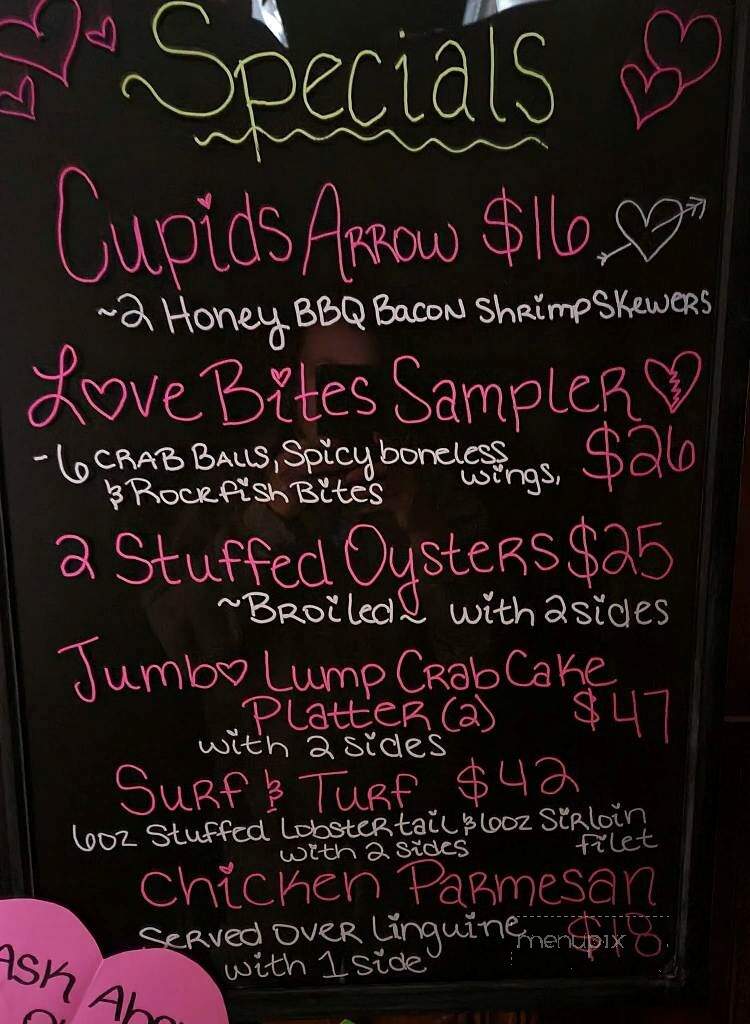 Specials
Cupids Arrow $16
~2 Honey BBQ Bacon Shrimp Skewers
Love Bites Sampler
-6 Crab Balls, Spicy boneless $26
wings,
& Rockfish Bites
2 Stuffed Oysters $25
~Broiled~ with 2 sides
Jumbo Lump Crab Cake
Platter (2) $47
with 2 sides
Surf & Turf $42
6oz Stuffed Lobster tail & 6oz Sirloin
with 2 sides filet
Chicken Parmesan
Served over Linguine $18
menupix
with 1 side
Ask